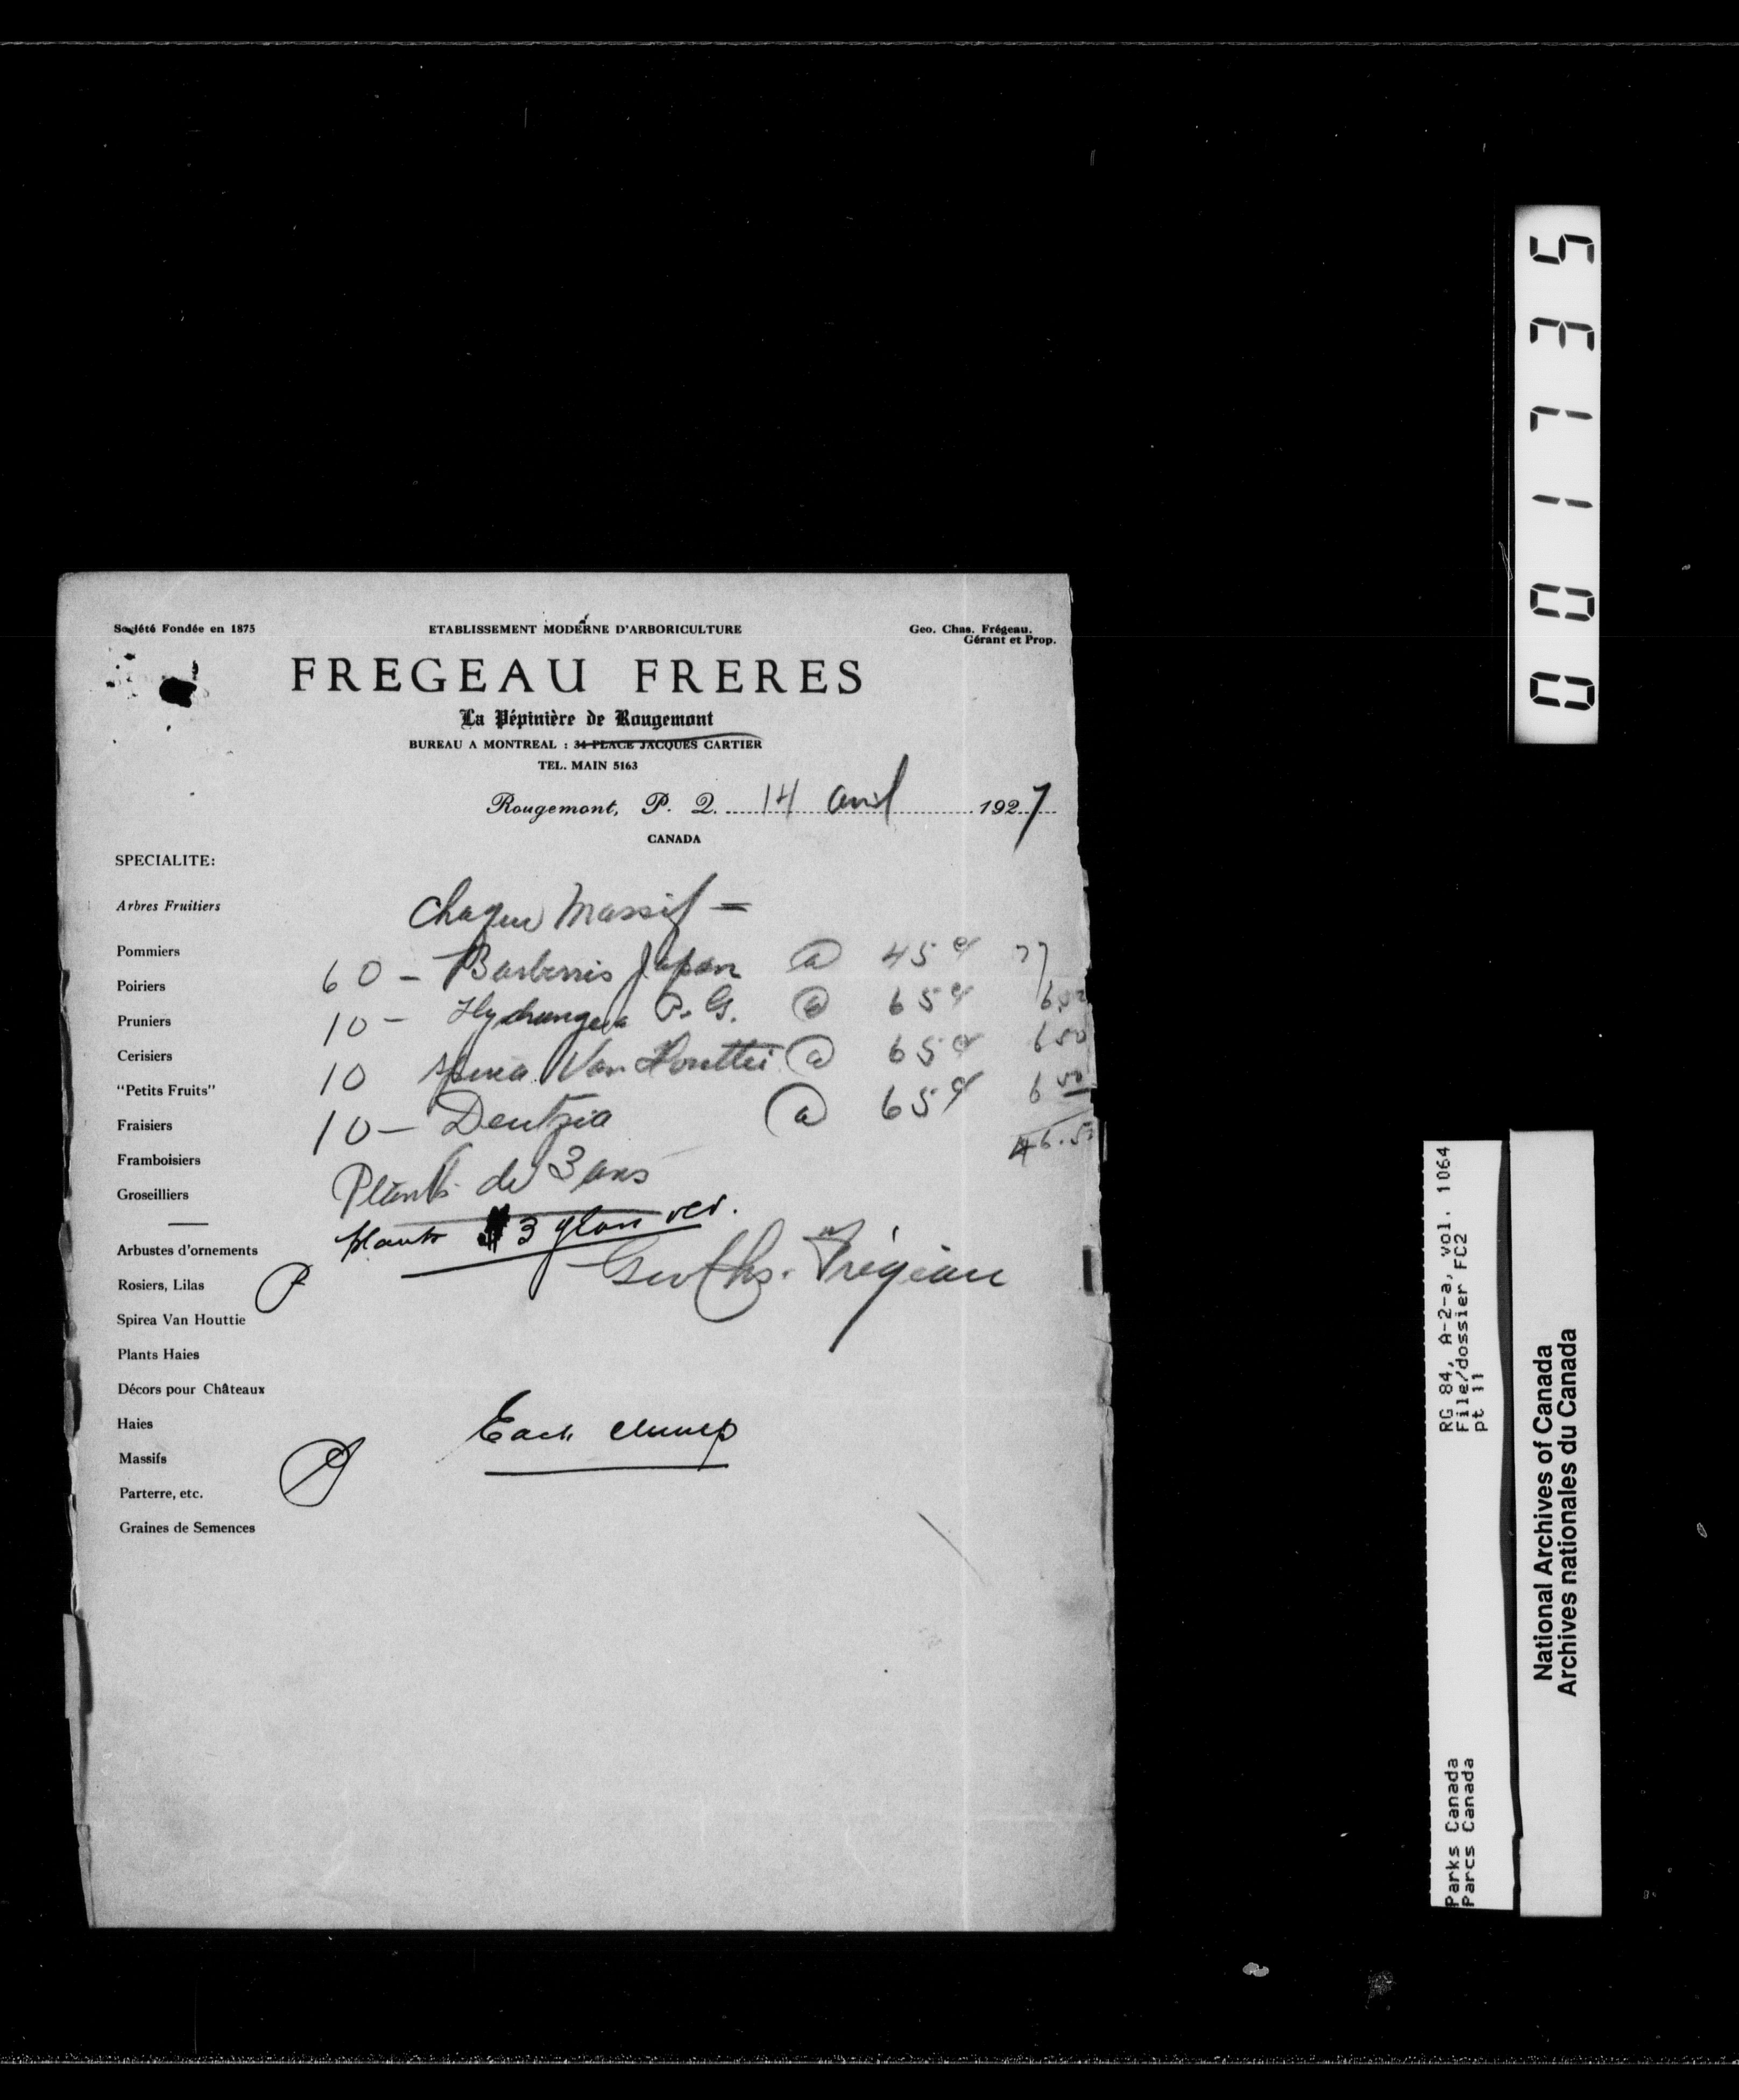 Société Fondée en 1875
ETABLISSEMENT MODERNE D'ARBORICULTURE
Geo. Chas. Frégeau.
Gérant et Prop.
FREGEAU FRERES
La Pépinière de Rougemont
BUREAU A MONTREAL : 34 PLACE JACQUES CARTIER
TEL. MAIN 5163
Rougemont, P. Q. 14 avril 1927
CANADA
SPECIALITE:
Arbres Fruitiers
Pommiers
Poiriers
Pruniers
Cerisiers
"Petits Fruits"
Fraisiers
Framboisiers
Groseilliers
Arbustes d'ornements
Rosiers, Lilas
Spirea Van Houttie
Plants Haies
Décors pour Châteaux
Haies
Massifs
Parterre, etc.
Graines de Semences
Chaque Massif =
60 - Barberris Japan @ 45¢
10 - Hydrangea P. G. @ 65¢ 6.50
10 Spirea Van Houttei @ 65¢ 6 50
10 - Deutzia @ 65¢ 6 50
46.50
Plants de 3 ans
plants 3 years old.
Geo Chs. Frégeau
Each clump
001735
RG 84, A-2-a, vol. 1064
File/dossier FC2
pt 11
Parks Canada
Parcs Canada
National Archives of Canada
Archives nationales du Canada